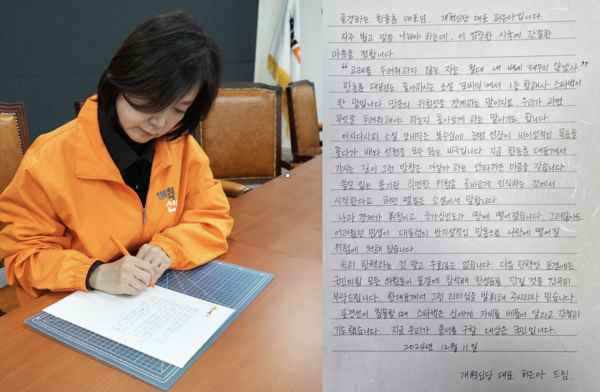 개혁
신당
존경하는 한동훈 대표님, 개혁신당 대표 허은아입니다.
자주 뵙고 말씀 나눠야 하는데, 이 엄중한 시국에 간절한
마음을 전합니다.
"고래를 두려워하지 않는 자는 절대 내 배에 태우지 않겠다"
한동훈 대표님도 좋아하시는 소설 '모비딕'에서 1등 항해사 스타벅이
한 말입니다. 만용의 위험성을 경계하는 말이지요. 우리가 과연
무엇을 두려워해야 하는지 돌아보게 하는 말이기도 합니다.
아시다시피 소설 모비딕은 복수심에 눈먼 선장이 비이성적인 목표를
좇다가 배와 선원을 모두 잃는 비극입니다. 지금 한동훈 대표께서
가시는 길이 그런 방향은 아닐까 하는 안타까운 마음을 갖습니다.
쓸모 있는 용기란 직면한 위험을 올바르게 인식하는 것에서
시작한다고 허먼 멜빌은 소설에서 말합니다.
나라 경제가 휘청이고 국가신인도가 땅에 떨어졌습니다. 그렇잖아도
어려웠던 민생이 대통령의 반지성적인 망동으로 나락에 떨어질
위험에 처해 있습니다.
속히 탄핵하는 것 말고 우회로는 없습니다. 다음 탄핵안 표결에는
국민의힘 모든 의원들이 표결에 참석해 찬성표를 던질 것을 간곡히
부탁드립니다. 한대표께서 그런 리더십을 발휘해 주시리라 믿습니다.
포경선이 침몰할 때 스타벅은 신에게 자비를 베풀어 달라고 간절히
기도했습니다. 지금 우리가 용서를 구할 대상은 국민입니다.
2024년 12월 11일
개혁신당 대표 허은아 드림